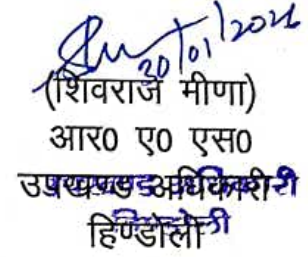 30/01/2021
(शिवराज मीणा)
आर0 ए0 एस0
उपखण्ड अधिकारी
हिण्डोली